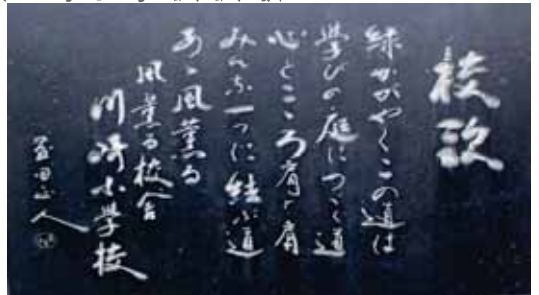 校歌
緑かがやくこの道は
學びの庭につゞく道
心とこころ肩と肩
みんな一つに結ぶ道
あゝ風薫る
風薫る校舎
川崎小學校